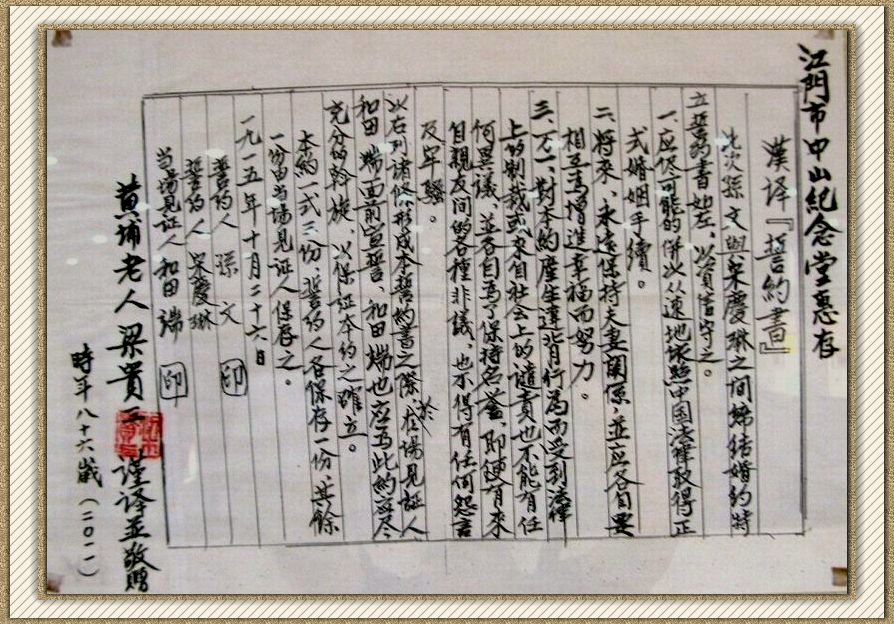 江門市中山紀念堂惠存
漢译『誓約書』
此次孫文與宋慶琳之间締结婚約特
立誓約書如左，以資信守之。
一、应尽可能的併以从速地依照中国法律取得正
式婚姻手續。
二、将來、永遠保持夫妻関係，並应各自要
相互為增進幸福而努力。
三、万一、對本約産生違背行為而受到法律
上的制裁或來自社会上的譴責也不能有任
何異議，並各自為了保持名誉、即便有來
自親友间的各種非議、也不得有任何怨言
及牢騷。
以右列诸條形成本誓約書之際、於在場見証人
和田 端面前宣誓、和田 端也应為此約应尽
充分的斡旋，以保证本约之確立。
本約一式三份、誓約人各保存一份、其餘
一份由当場見证人保存之。
一九一五年十月二十六日
誓約人 孫 文 印
誓約人 宋慶琳
当場見证人 和田 端 印
黄埔老人 梁貴 謹译並敬贈
時年八十六歲（二〇一一）